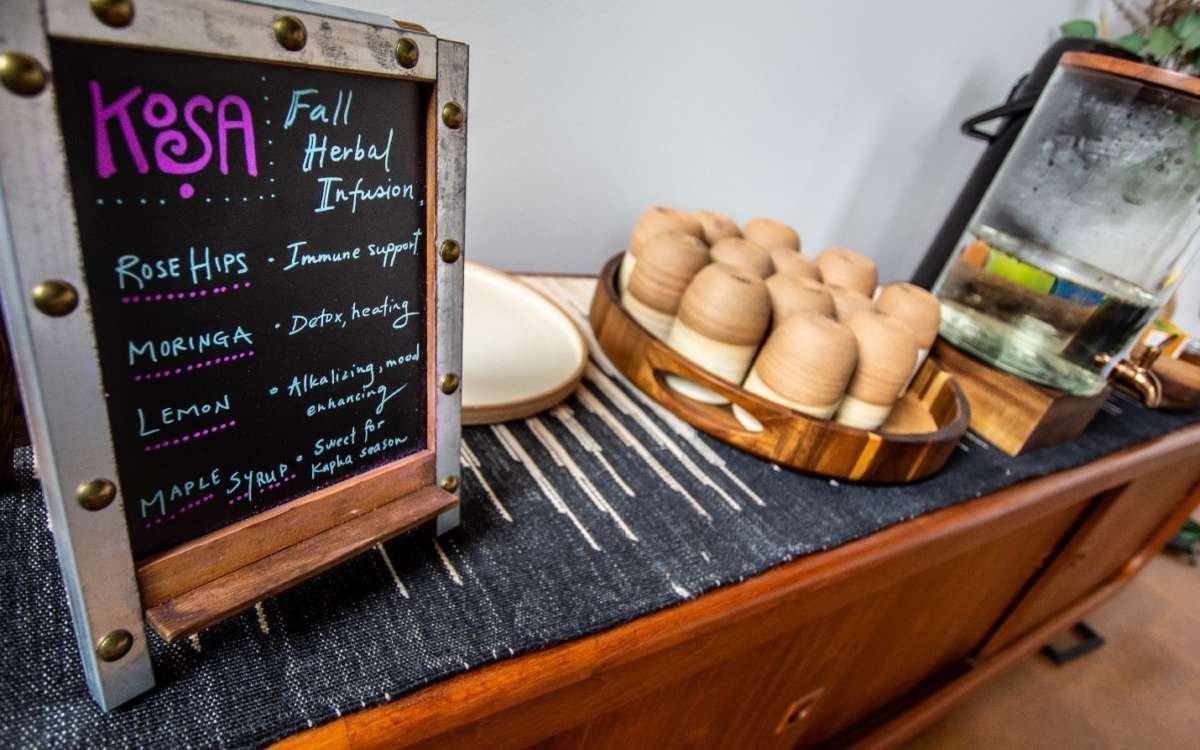 KOSA
Fall
Herbal
Infusion
ROSE HIPS · Immune support
MORINGA · Detox, heating
LEMON · Alkalizing, mood
enhancing
MAPLE SYRUP · Sweet for
Kapha season